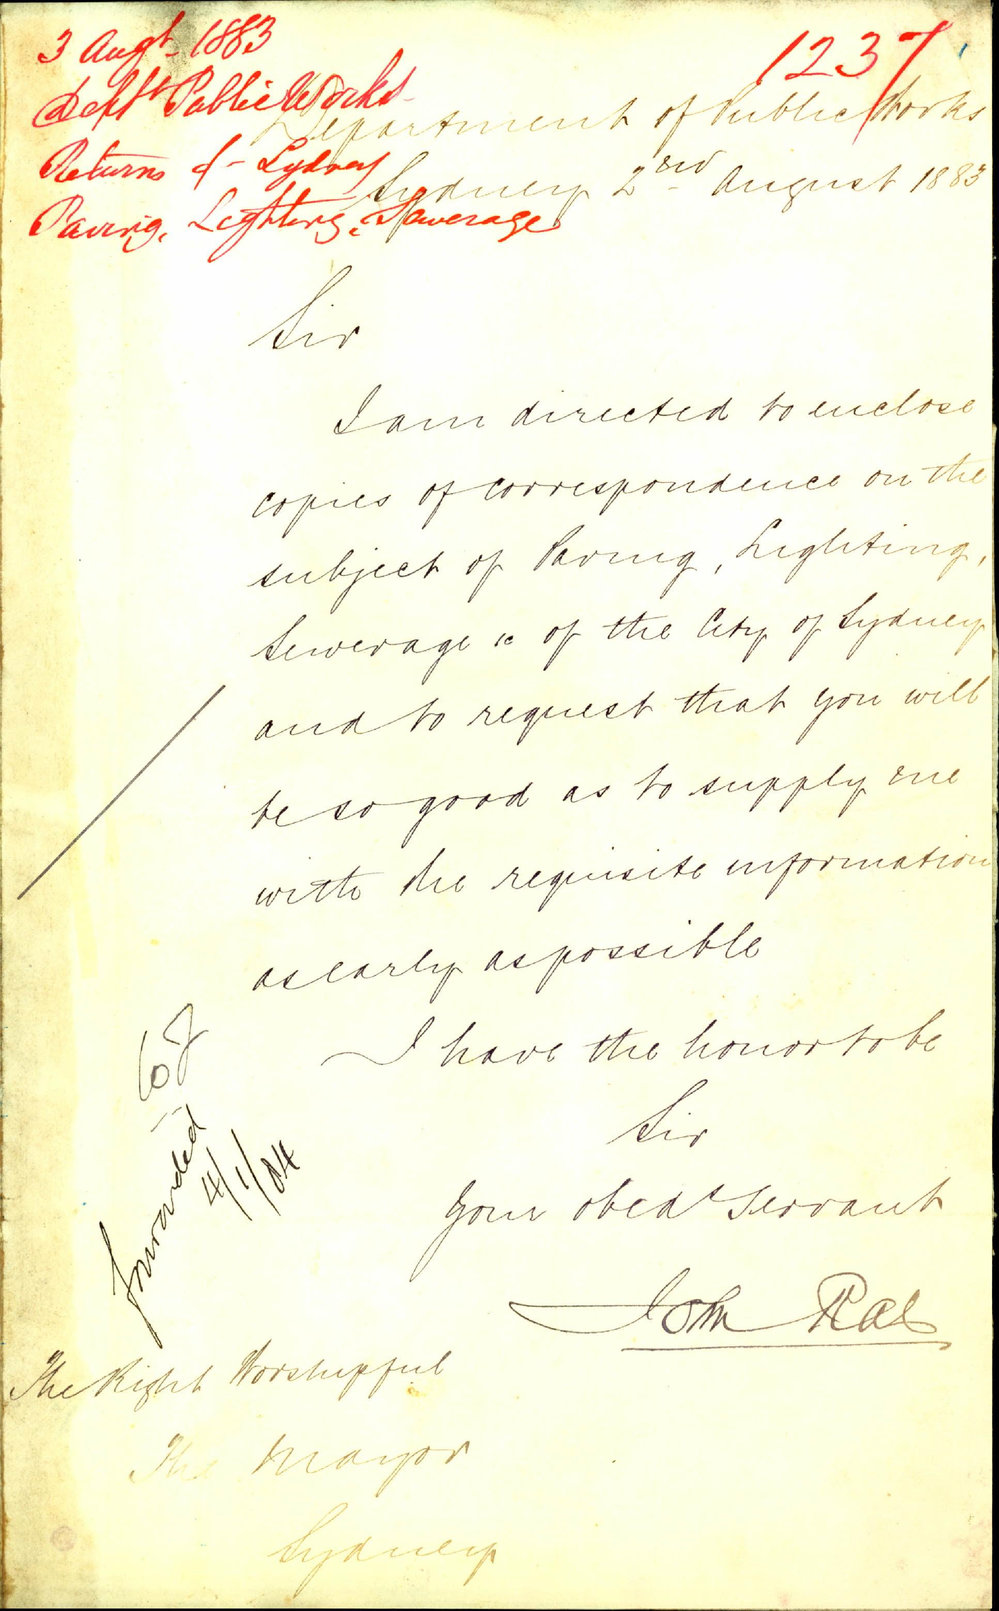 3 Augt. 1883
1237
Deptt Public Works
Department of Public Works
Returns of - Sydney
Sydney 2nd August 1883
Paving, Lighting, Sewerage
Sir
I am directed to enclose
copies of correspondence on the
subject of Paving, Lighting,
Sewerage &c of the City of Sydney
and to request that you will
be so good as to supply me
with the requisite information
as early as possible
I have the honor to be
Sir
Your obedt Servant
John Rae
forwarded
4/1/84
The Right Worshipful
The Mayor
Sydney